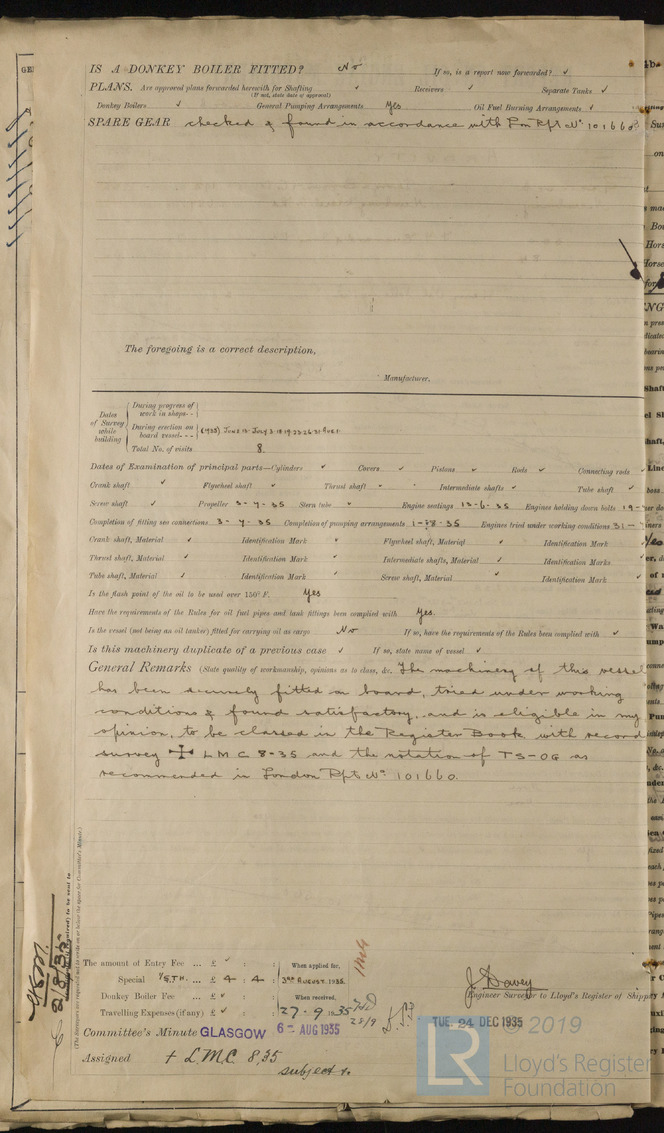 IS A DONKEY BOILER FITTED? No If so, is a report now forwarded? ✓
PLANS. Are approved plans forwarded herewith for Shafting ✓ Receivers ✓ Separate Tanks ✓
(If not, state date of approval)
Donkey Boilers ✓ General Pumping Arrangements Yes Oil Fuel Burning Arrangements ✓
SPARE GEAR checked & found in accordance with Lon Rpt No 101660
The foregoing is a correct description,
Manufacturer.
Dates of Survey while building
During progress of work in shops - -
During erection on board vessel - - - (1935) JUNE 13 JULY 3.18.19.23.26.31. AUG 1
Total No. of visits 8.
Dates of Examination of principal parts—Cylinders ✓ Covers ✓ Pistons ✓ Rods ✓ Connecting rods ✓
Crank shaft ✓ Flywheel shaft ✓ Thrust shaft ✓ Intermediate shafts ✓ Tube shaft ✓
Screw shaft ✓ Propeller 3-7-35 Stern tube ✓ Engine seatings 13-6-35 Engines holding down bolts 19-
Completion of fitting sea connections 3-7-35 Completion of pumping arrangements 1-8-35 Engines tried under working conditions 31-
Crank shaft, Material ✓ Identification Mark ✓ Flywheel shaft, Material ✓ Identification Mark ✓
Thrust shaft, Material ✓ Identification Mark ✓ Intermediate shafts, Material ✓ Identification Marks ✓
Tube shaft, Material ✓ Identification Mark ✓ Screw shaft, Material ✓ Identification Mark ✓
Is the flash point of the oil to be used over 150° F. Yes
Have the requirements of the Rules for oil fuel pipes and tank fittings been complied with Yes.
Is the vessel (not being an oil tanker) fitted for carrying oil as cargo No If so, have the requirements of the Rules been complied with ✓
Is this machinery duplicate of a previous case ✓ If so, state name of vessel ✓
General Remarks (State quality of workmanship, opinions as to class, &c. The machinery of this vessel
has been securely fitted on board, tried under working
conditions & found satisfactory, and is eligible in my
opinion, to be classed in the Register Book with record
survey ✠ LMC 8-35 and the notation of TS-OG as
recommended in London Rpt No 101660.
The amount of Entry Fee ... £ ✓ : : When applied for,
Special 1/5TH. ... £ 4 : 4 : 3RD AUGUST 1935.
Donkey Boiler Fee ... £ ✓ : : When received,
Travelling Expenses (if any) £ ✓ : : 27-9 1935 28/9
J. Davey
Engineer Surveyor to Lloyd's Register of Shipping
Committee's Minute GLASGOW 6 - AUG 1935 TUE 24 DEC 1935
Assigned + LMC 8,35
subject to
(The Surveyors are requested not to write on or below the space for Committee's Minute.)
© 2019
LR
Lloyd's Register
Foundation